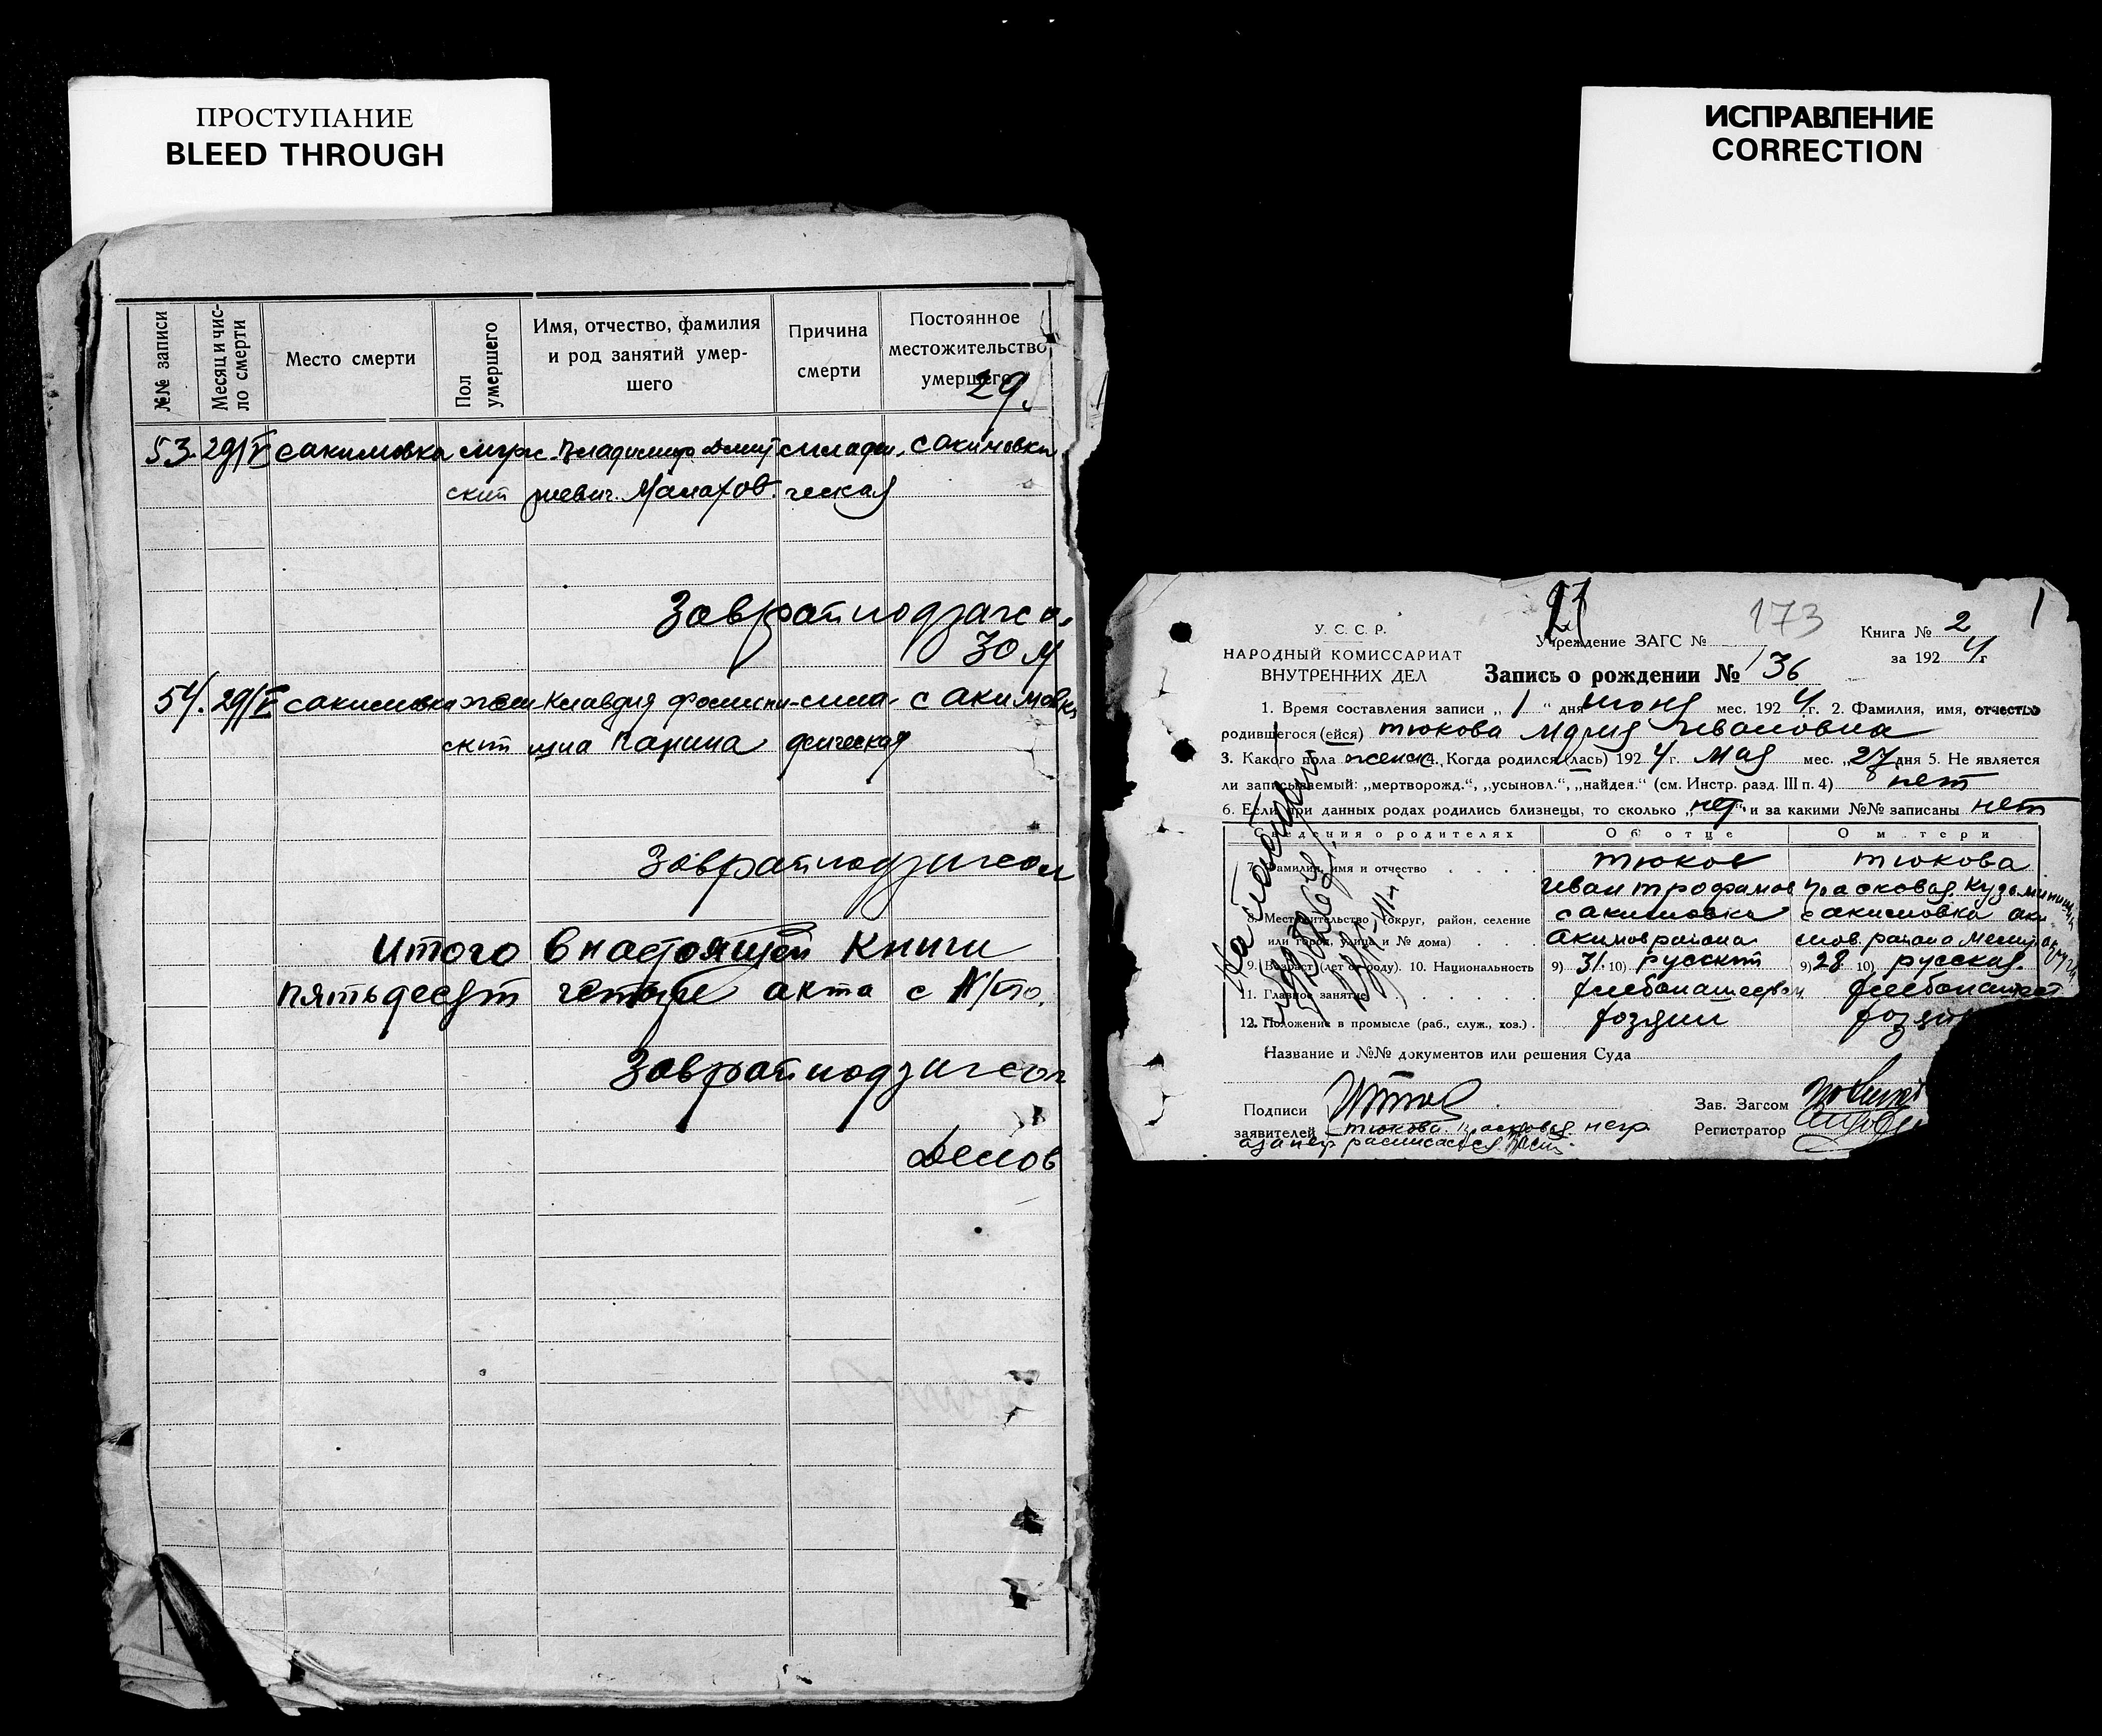 ПРОСТУПАНИЕ
BLEED THROUGH
ИСПРАВЛЕНИЕ
CORRECTION
№№ записи
Месяц и чис-
ло смерти
Место смерти
Пол
умершего
Имя, отчество, фамилия
и род занятий умер-
шего
Причина
смерти
Постоянное
местожительство
умершего
29.
53. 29/V сакимовка мужс. Владимир Дмит младен. с акимовки
ский риевич Малахов ческая
Заврайподзагсо
54. 29/V сакимовка жен Клавдия с акимовка
ский
Заврайподзагсом
Итого в настоящей книги
пятьдесят четыре акта с
Заврайподзагсом
У. С. С. Р.
НАРОДНЫЙ КОМИССАРИАТ
ВНУТРЕННИХ ДЕЛ
Учреждение ЗАГС № 173
Книга № 2
за 1924 г
Запись о рождении № 136
1. Время составления записи „ 1 “ дня июня мес. 1924 г. 2. Фамилия, имя, отчество
родившегося (ейся) Тюкова Мария Ивановна
3. Какого пола женск 4. Когда родился (лась) 1924 г. Мая мес. „27 дня 5. Не является
ли записываемый: „мертворожд.“, „усыновл.“, „найден.“ (см. Инстр. разд. III п. 4) нет
6. Если при данных родах родились близнецы, то сколько „нет“ и за какими №№ записаны нет
Сведения о родителях Об отце О матери
7. Фамилия, имя и отчество Тюков Тюкова
Иван Трофимов Прасковья Кузьминична
8. Местожительство (округ, район, селение с акимовка с акимовка аки
или город, улица и № дома) Акимов района мов. района
9. Возраст (лет от роду). 10. Национальность 9) 31. 10) русский 9) 28 10) русская.
11. Главное занятие хлебопашеством хлебопашест
12. Положение в промысле (раб., служ., хоз.) хозяин хозяй
Название и №№ документов или решения Суда
Подписи
заявителей Тюкова Прасковья негр
Зав. Загсом
Регистратор